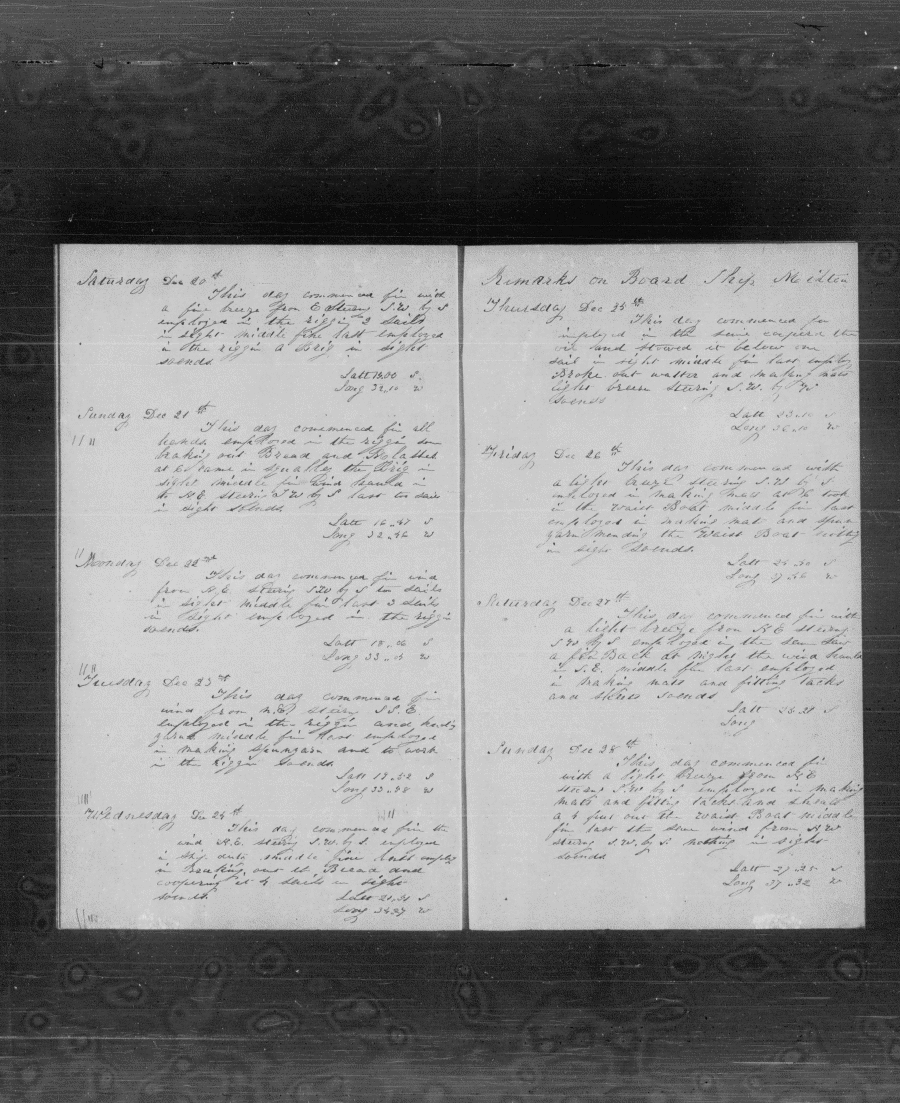 Saturday Dec 20th
This day commenced fin with
a fine breeze from E Steering S.W. by S
employed in the riggin 2 sails
in sight middle fine last employed
in the riggin a Brig in sight
soends.
Latt 15.00 S
Long 32.10 W
Sunday Dec 21th
This day commenced fin all
hands employed in the riggin som
braking out Bread and Molasses
at 6 came in squalley the Brig in
sight middle fin wind hauld in
to N.E. steerin S W by S last two sails
in sight soends.
Latt 16..47 S
Long 32..46 W
Monday Dec 22nd
This day commenced fin wind
from N.E. steerin S.W by S two sails
in sight middle fin last 3 sails
in sight employed in the riggin
soends.
Latt 18..06 S
Long 33..15 W
Tuesday Dec 23rd
This day commenced fin
wind from N.E. steerin S S.E
employed in the riggin and
middle fin last employed
in making spunyarn and to work
in the Riggin Soends
Latt 19..52 S
Long 33..48 W
Wednesday Dec 24th
This day commenced fin the
wind N.E. steerin S.W. by S. employed
in ship duty middle fine last employ
in Breaking out Bread and
coopering it 4 sails in sight
soends
Latt 21..31 S
Long 34.27 W
Remarks on Board Ship Milton
Thursday Dec 25th
This day commenced fin
imployed in the same coopered the
and stowed it below one
sail in sight middle fin last employ
Broke out watter and making mats
light breese steering S.W. by W
Soends
Latt 23..10 S
Long 36..10 W
Friday Dec 26th
This day commenced with
a light breeze steering S.W by S
imployed in making mats at took
in the waist Boat middle fin last
employed in making mat and spun
yarn mending the Waist Boat nothing
in sight Soends.
Latt 24..50 S
Long 37.56 W
Saturday Dec 27th
This day commenced fin with
a light breeze from N E steerin
S.W by S employed in the same saw
a fin Back at night the wind hauld
in S.E. middle fin last employed
in making matts and fitting tacks
and sheets Soends
Latt 26.21 S
Long
Sunday Dec 28th
This day commenced fin
with a light Breeze from N E
steering S.W by S employed in making
matts and fitting tacks and sheats
a 6 put out the Waist Boat middle
fin last the same wind from N.W
steering S.W. by S. nothing in sight
soends
Latt 27..25 S
Long 37..32 W